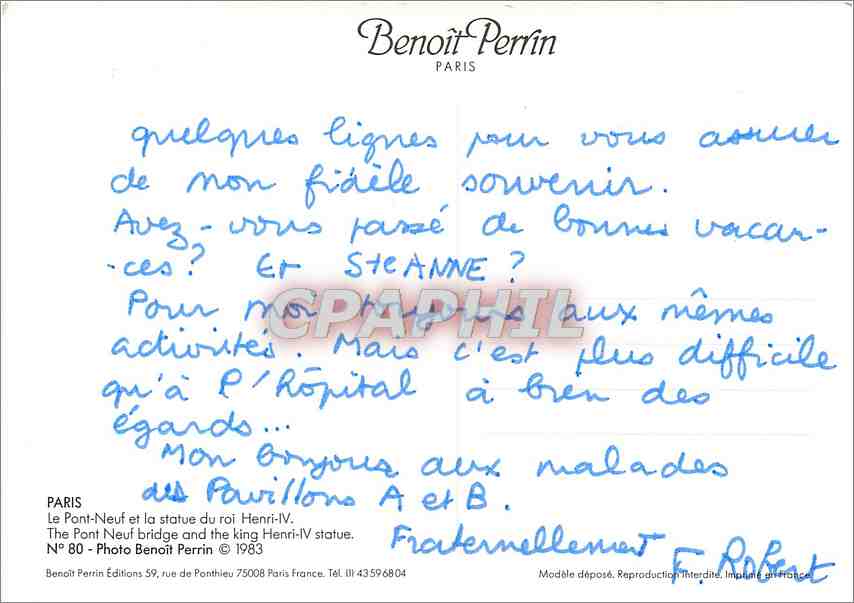 Benoît Perrin
PARIS
quelques lignes pour vous assurer
de mon fidèle souvenir.
Avez-vous passé de bonnes vacan-
-ces? Et Ste ANNE?
Pour moi toujours aux mêmes
CPAPHIL
activités. Mais c'est plus difficile
qu'à l'Hôpital à bien des
égards...
Mon bonjour aux malades
des Pavillons A et B.
Fraternellement
F. Robert
PARIS
Le Pont-Neuf et la statue du roi Henri-IV.
The Pont Neuf bridge and the king Henri-IV statue.
N° 80 - Photo Benoît Perrin © 1983
Benoît Perrin Éditions 59, rue de Ponthieu 75008 Paris France. Tél. (1) 43 59 68 04
Modèle déposé. Reproduction Interdite. Imprimé en France